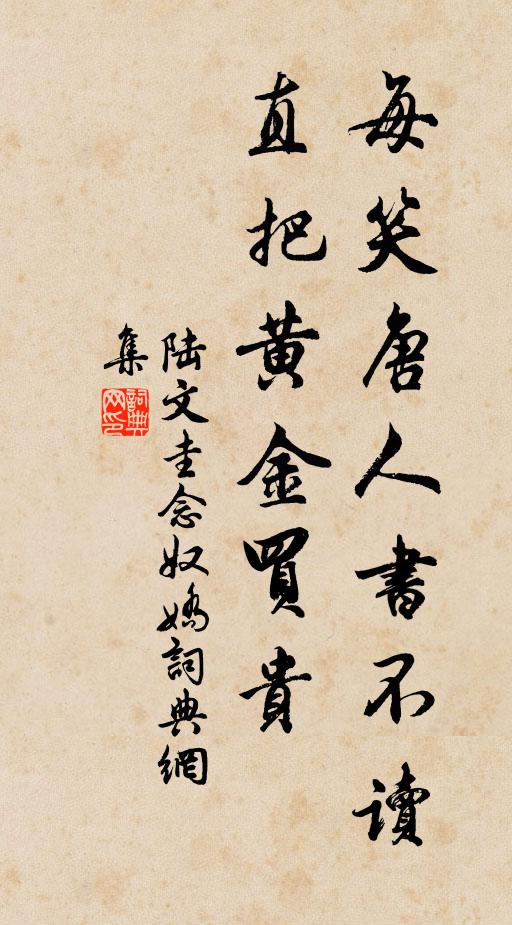 每笑唐人書不讀
直把黃金買貴
陸文圭念奴嬌詞典網
集
詞典
网印